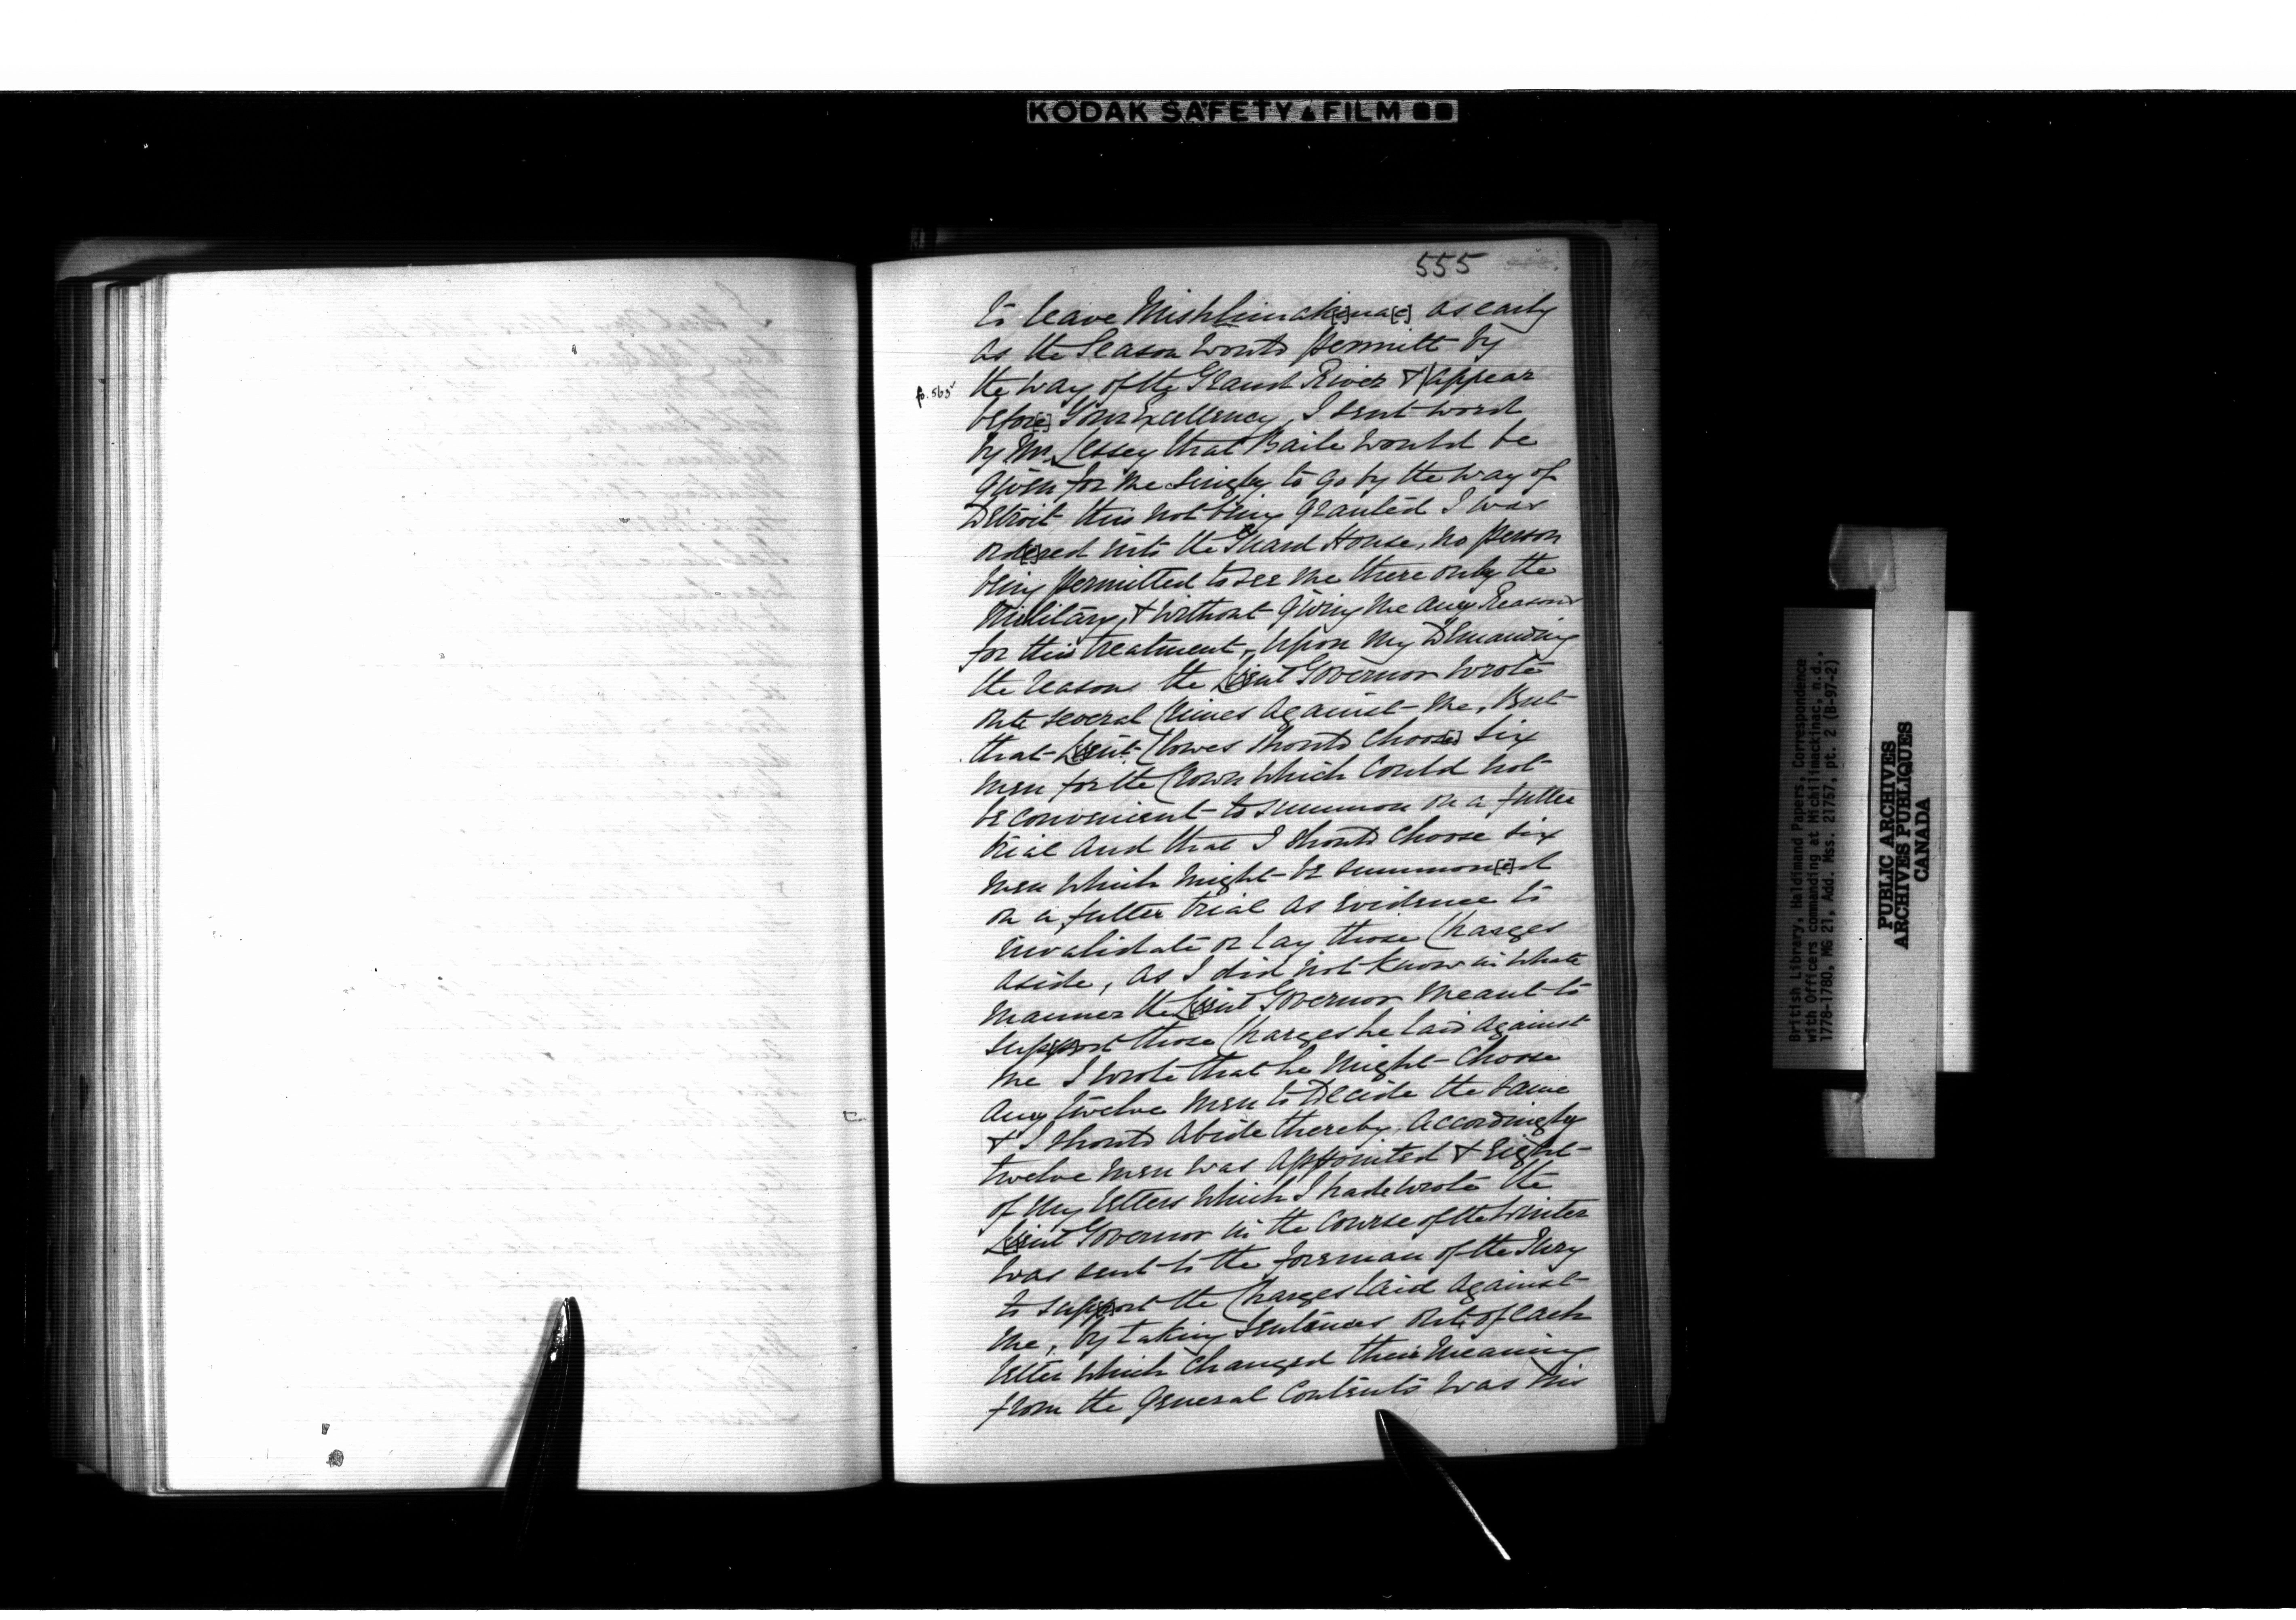 KODAK SAFETY FILM
555
to leave Mishlimak[e]na[c] as early
as the Season would permitt by
fo. 565 the way of the Grand River & appear
befor[e] Your Excellency, I sent word
by Mr. Lessey that Baile would be
given for me singly to go by the way of
Detroit this not being granted I was
ord[e]red into the Guard House, no person
being permitted to see me there only the
Military, & without giving me any Reasons
for this treatment, upon my Demanding
the reasons the Lieut Governor wrote
oute several Crimes against me, But
that Lieut. Clowes should Choos[e] six
men for the Crown which Could not
be convenient to summon on a futter
trial and that I should Choose six
men which might be summon[e]d
on a futter trial as evidence to
invalidate or lay those Charges
aside, as I did not know in whate
manner the Lieut Governor meant to
support those Charges he laid against
me I wrote that he might Choose
any twelve men to Decide the same
& I should abide thereby, accordingly
twelve men was appointed & eight
of my letters which I hade wrote the
Lieut Governor in the course of the winter
was sent to the foreman of the Jury
to support the Charges laid against
me, by taking sentences out of each
letter which changed their meaning
from the general Contents was this
British Library, Haldimand Papers, Correspondence
with Officers commanding at Michilimackinac, n.d.,
1778-1780, MG 21, Add. Mss. 21757, pt. 2 (B-97-2)
PUBLIC ARCHIVES
ARCHIVES PUBLIQUES
CANADA